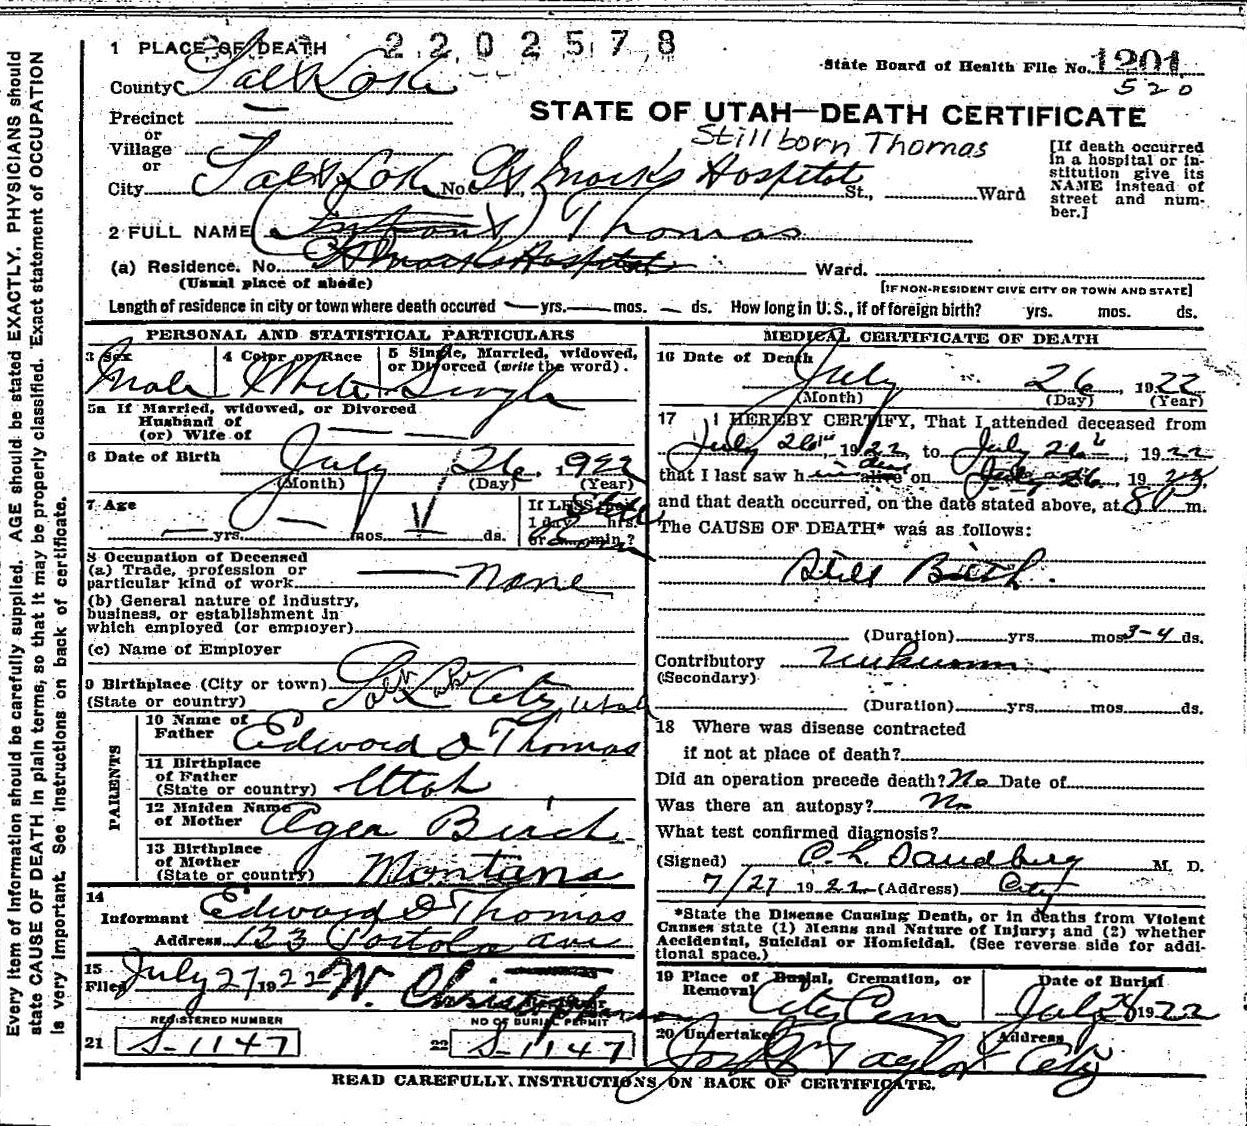 1 PLACE OF DEATH
2202578
State Board of Health File No. 1201
520
County Salt Lake
STATE OF UTAH—DEATH CERTIFICATE
Precinct
or
Village
or
City Salt Lake No. St Marks Hospital St., Ward
Stillborn Thomas
[If death occurred
in a hospital or in-
stitution give its
NAME instead of
street and num-
ber.]
2 FULL NAME (Infant) Thomas
(a) Residence. No. St Marks Hospital Ward.
(Usual place of abode)
[IF NON-RESIDENT GIVE CITY OR TOWN AND STATE]
Length of residence in city or town where death occured — yrs. — mos. — ds. How long in U.S., if of foreign birth? yrs. mos. ds.
PERSONAL AND STATISTICAL PARTICULARS
3 Sex
Male
4 Color or Race
White
5 Single, Married, widowed,
or Divorced (write the word).
Single
5a If Married, widowed, or Divorced
Husband of
(or) Wife of
6 Date of Birth July 26, 1922
(Month) (Day) (Year)
7 Age
yrs. mos. ds.
If LESS than
1 day hrs.
or min.?
Still
Born
8 Occupation of Deceased
(a) Trade, profession or
particular kind of work None
(b) General nature of industry,
business, or establishment in
which employed (or employer)
(c) Name of Employer
9 Birthplace (City or town) Salt Lake City
(State or country) Utah
PARENTS
10 Name of
Father Edward D Thomas
11 Birthplace
of Father
(State or country) Utah
12 Maiden Name
of Mother Agea Birch
13 Birthplace
of Mother
(State or country) Montana
14
Informant Edward D Thomas
Address 123 Portola ave
15
Filed July 27 1922 W. Christopherson
REGISTERED NUMBER
21 S-1147
NO OF BURIAL PERMIT
22 S-1147
MEDICAL CERTIFICATE OF DEATH
16 Date of Death
July 26, 1922
(Month) (Day) (Year)
17 I HEREBY CERTIFY, That I attended deceased from
July 26th, 1922, to July 26th, 1922
that I last saw him alive dead on July 26, 1923,
and that death occurred, on the date stated above, at 8 P m.
The CAUSE OF DEATH* was as follows:
Still Birth.
(Duration) yrs. mos. 3-4 ds.
Contributory Unknown
(Secondary)
(Duration) yrs. mos. ds.
18 Where was disease contracted
if not at place of death?
Did an operation precede death? No Date of
Was there an autopsy? No
What test confirmed diagnosis?
(Signed) C. L. Sandberg M. D.
7/27 1922 (Address) City
*State the Disease Causing Death, or in deaths from Violent
Causes state (1) Means and Nature of Injury; and (2) whether
Accidental, Suicidal or Homicidal. (See reverse side for addi-
tional space.)
19 Place of Burial, Cremation, or
Removal City Cem
Date of Burial
July 28 1922
20 Undertaker
Taylor
Address
City
READ CAREFULLY INSTRUCTIONS ON BACK OF CERTIFICATE.
Every item of information should be carefully supplied. AGE should be stated EXACTLY. PHYSICIANS should
state CAUSE OF DEATH in plain terms, so that it may be properly classified. Exact statement of OCCUPATION
is very important. See instructions on back of certificate.